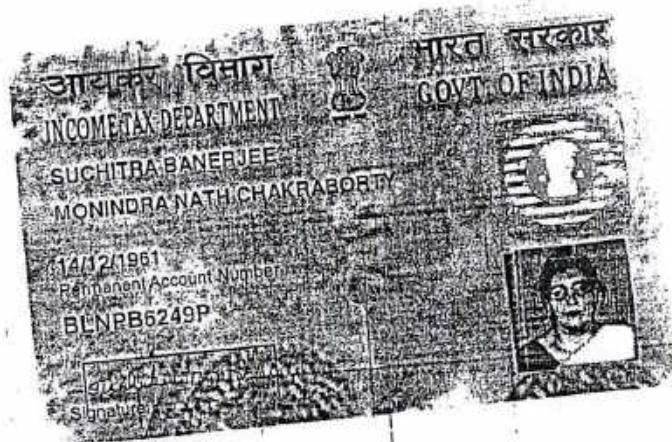 आयकर विभाग
भारत सरकार
INCOME TAX DEPARTMENT
GOVT. OF INDIA
SUCHITRA BANERJEE
MONINDRA NATH CHAKRABORTY
14/12/1961
Permanent Account Number
BLNPB6249P
Signature